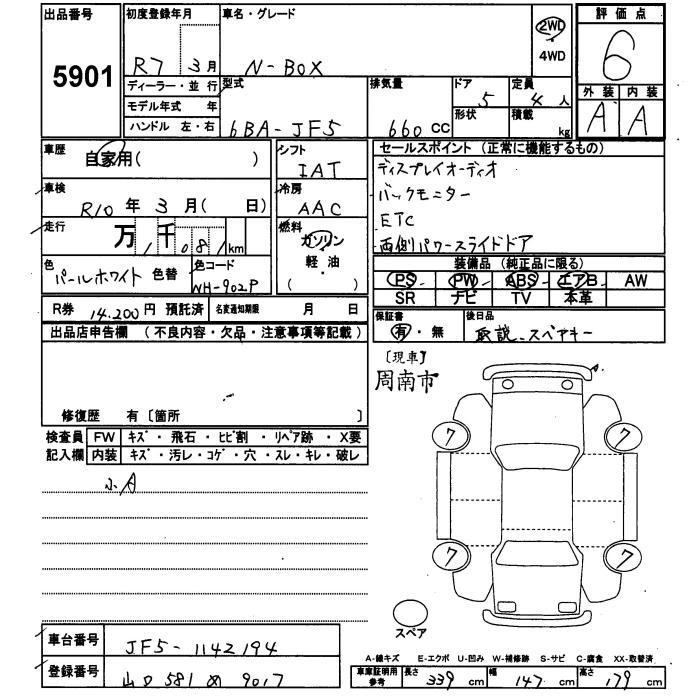 出品番号
5901
初度登録年月
R7 3月
車名・グレード
N-BOX
2WD
4WD
評価点
6
外装 内装
A A
ディーラー・並行
モデル年式 年
ハンドル 左・右
型式
6BA-JF5
排気量
660 CC
ドア
5
形状
定員
4人
積載
kg
車歴
自家用( )
車検
R10年3月( 日)
走行
万1千081km
色
パールホワイト 色替
色コード
NH-902P
シフト
IAT
冷房
AAC
燃料
ガソリン
軽・油
( )
セールスポイント (正常に機能するもの)
ディスプレイオーディオ
バックモニター
ETC
両側パワースライドドア
装備品 (純正品に限る)
PS PW ABS エアB AW
SR ナビ TV 本革
R券 14,200円 預託済 名変通知期限 月 日
保証書
有・無
後日品
取説、スペアキー
出品店申告欄 (不良内容・欠品・注意事項等記載)
修復歴 有〔箇所 〕
[現車]
周南市
検査員 FW キズ・飛石・ヒビ割・リペア跡・X要
記入欄 内装 キズ・汚レ・コゲ・穴・スレ・キレ・破レ
小A
A
7 7
7 7
スペア
車台番号
JF5-1142194
登録番号
山口 581 め 9017
A-線キズ E-エクボ U-凹み W-補修跡 S-サビ C-腐食 XX-取替済
車庫証明用参考 長さ 339 cm 幅 147 cm 高さ 179 cm